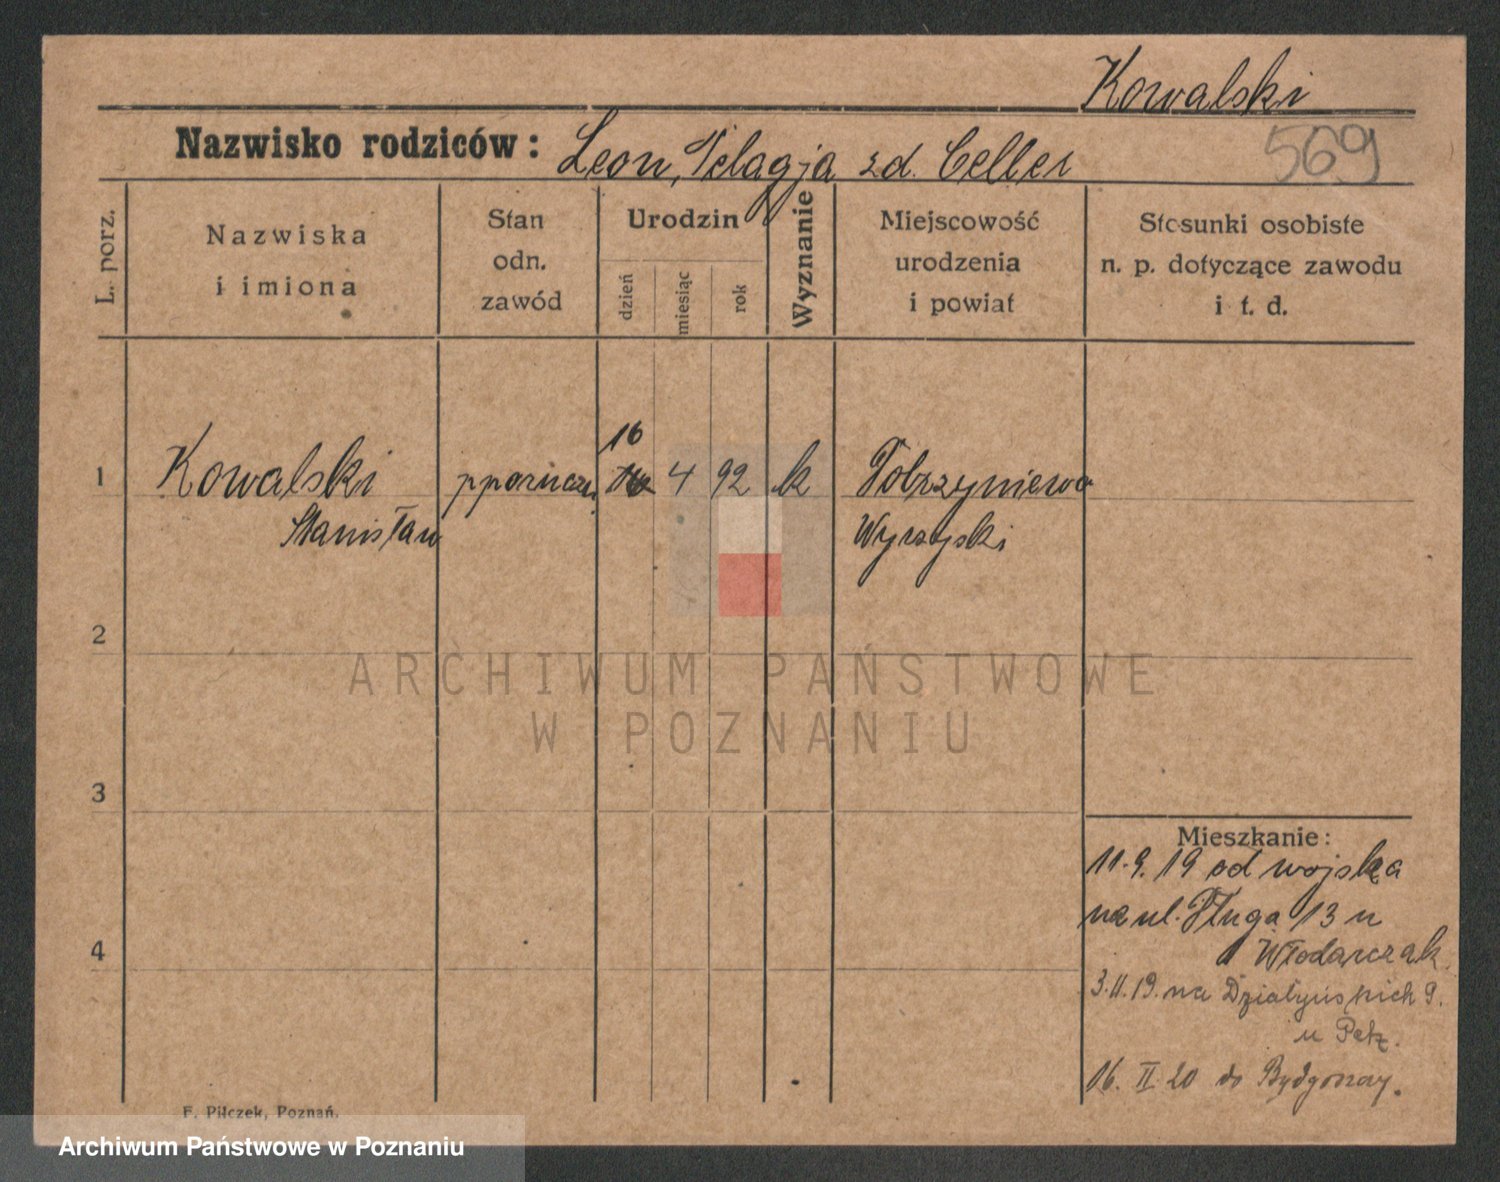 Kowalski
Nazwisko rodziców: Leon, Pelagja zd. Celler
569
L. porz.
Nazwiska
i imiona
Stan
odn.
zawód
Urodzin
dzień
miesiąc
rok
Wyznanie
Miejscowość
urodzenia
i powiat
Stosunki osobiste
n. p. dotyczące zawodu
i t. d.
16
1 Kowalski 4 92 k Dobrzyniewo
Stanisław Wyrzyski
2
ARCHIWUM PAŃSTWOWE
W POZNANIU
3
Mieszkanie:
11.9.19 od wojska
na ul. Długa 13 u
4
Włodarczak
3.11.19. na Działyńskich 9.
u
16. II 20 do Bydgoszczy.
F. Pilczek, Poznań.
Archiwum Państwowe w Poznaniu